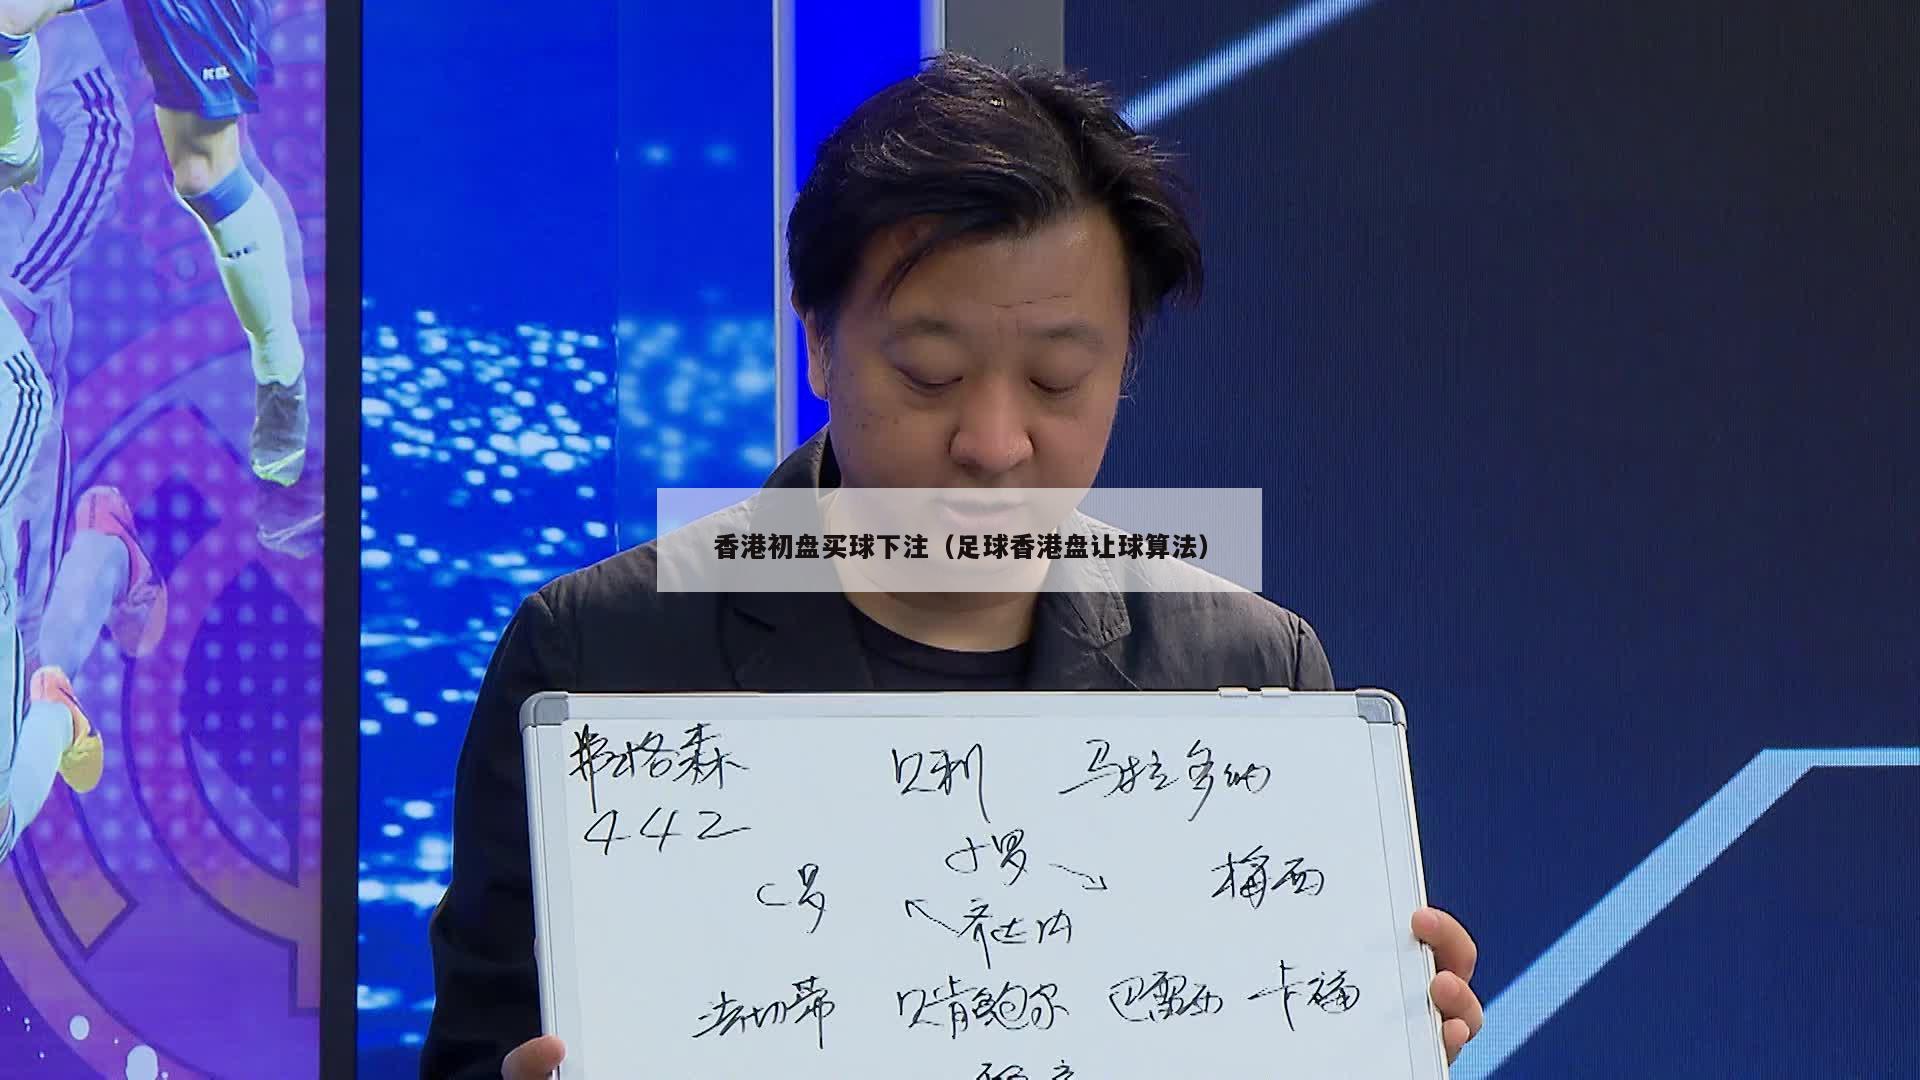 香港初盘买球下注（足球香港盘让球算法）
弗格森 贝利 马拉多纳
442
小罗
C罗 梅西
齐达内
法切蒂 贝肯鲍尔 巴雷西 卡福